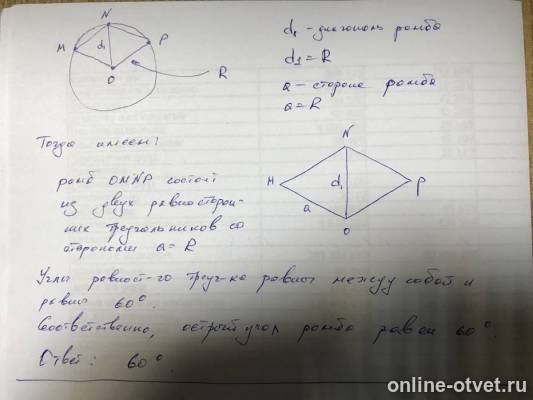 N
M
P
d₁
O
R
d₁ - диагональ ромба
d₁ = R
a - сторона ромба
a = R
Тогда имеем:
ромб OMNP состоит
из двух равносторон-
них треугольников со
сторонами a = R
N
M
d₁
P
a
O
Углы равност-го треуг-ка равны между собой и
равны 60°.
Соответственно, острый угол ромба равен 60°.
Ответ: 60°.
online-otvet.ru